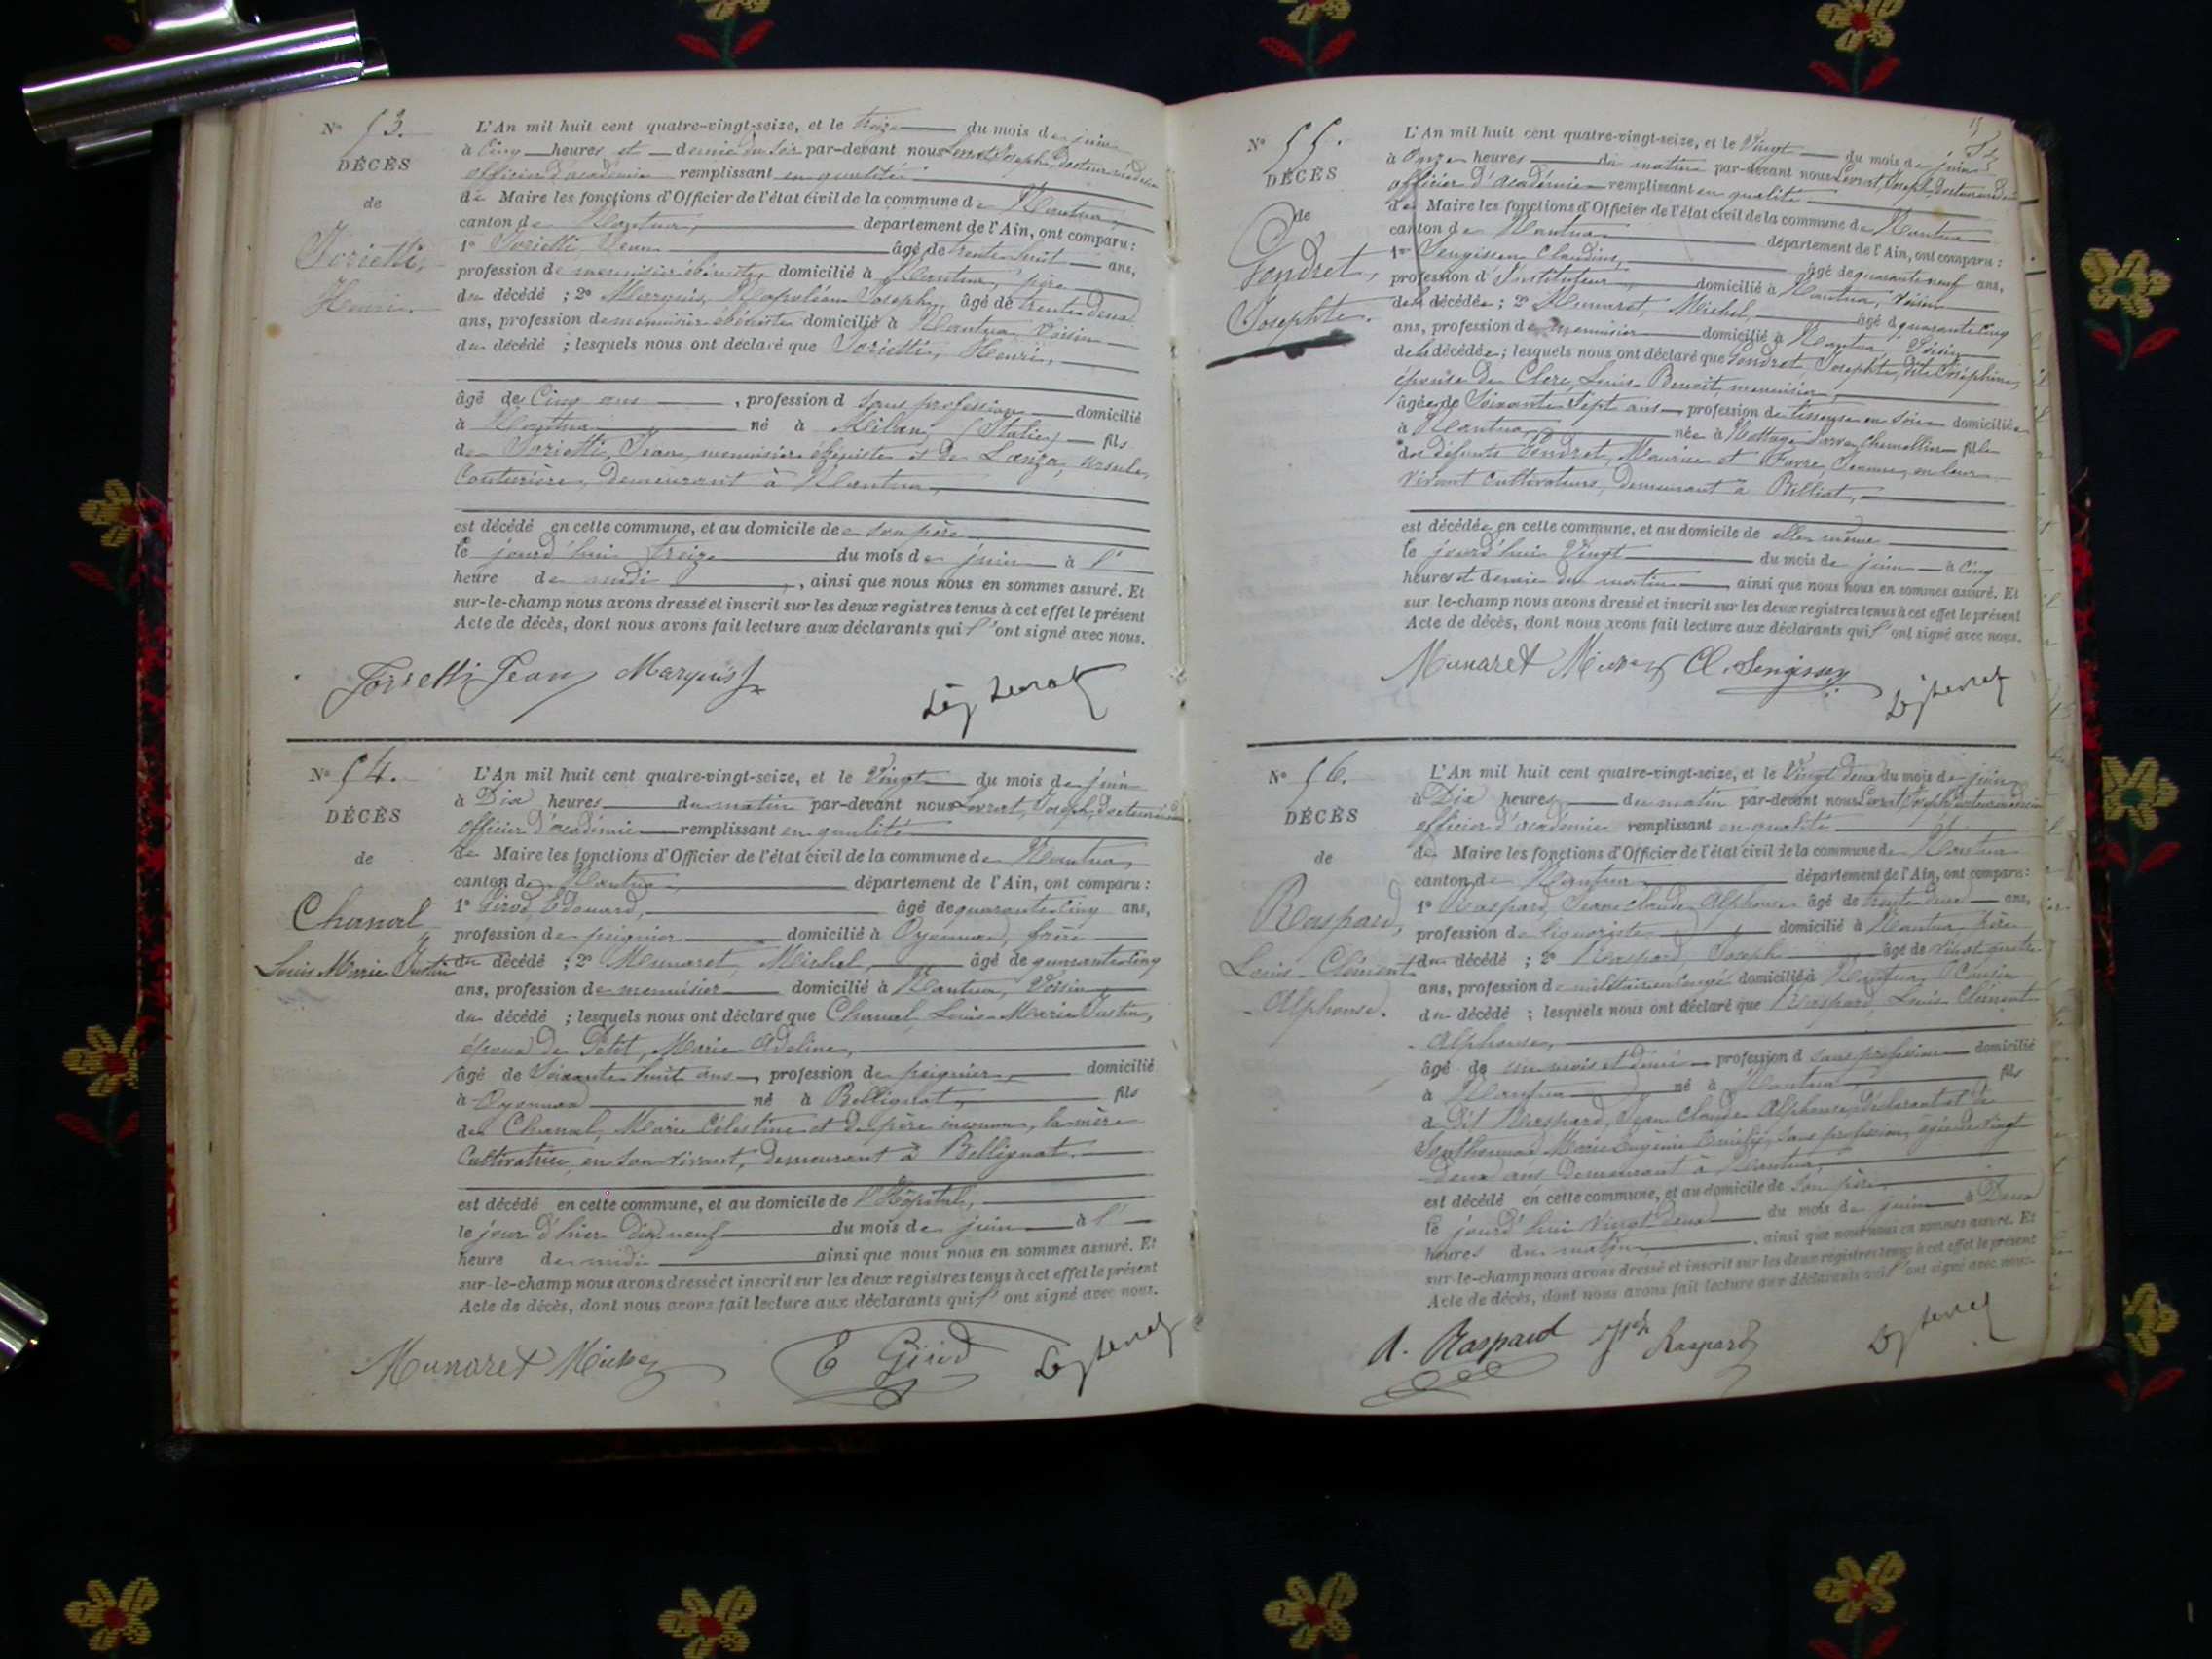 N° 53.
DÉCÈS
de
Jorielli,
Henri.
L'An mil huit cent quatre-vingt-seize, et le treize du mois de juin
à Cinq heures et demie du soir par-devant nous Levrat, Joseph, docteur médecin
officier d'académie remplissant en qualité
de Maire les fonctions d'Officier de l'état civil de la commune de Nantua,
canton de Nantua, département de l'Ain, ont comparu :
1° Jorielli, Jean âgé de trente huit ans,
profession de menuisier ébéniste, domicilié à Nantua, père
du décédé ; 2° Marquis, Napoléon Joseph, âgé de trente deux
ans, profession de menuisier ébéniste domicilié à Nantua, Voisin
du décédé ; lesquels nous ont déclaré que Jorielli, Henri,
âgé de Cinq ans, profession d sans profession domicilié
à Nantua né à Milan (Italie) fils
de Jorielli, Jean, menuisier ébéniste et de Lanza, Ursule,
Couturière, demeurant à Nantua,
est décédé en cette commune, et au domicile de son père
le jourd'hui treize du mois de juin à l'
heure de midi, ainsi que nous nous en sommes assuré. Et
sur-le-champ nous avons dressé et inscrit sur les deux registres tenus à cet effet le présent
Acte de décès, dont nous avons fait lecture aux déclarants qui l'ont signé avec nous.
Jorielli Jean Marquis
Levrat
N° 54.
DÉCÈS
de
Chanal
Louis Marie Justin
L'An mil huit cent quatre-vingt-seize, et le Vingt du mois de juin
à Dix heures du matin par-devant nous Levrat, Joseph, docteur médecin
officier d'académie remplissant en qualité
de Maire les fonctions d'Officier de l'état civil de la commune de Nantua,
canton de Nantua, département de l'Ain, ont comparu :
1° Girod, Edouard, âgé de quarante cinq ans,
profession de peignier domicilié à Oyonnax, frère
du décédé ; 2° Munaret, Michel, âgé de quarante cinq
ans, profession de menuisier domicilié à Nantua, Voisin
du décédé ; lesquels nous ont déclaré que Chanal, Louis-Marie Justin,
époux de Petit, Marie Adeline,
âgé de Soixante huit ans, profession de peignier, domicilié
à Oyonnax né à Bellignat, fils
de Chanal, Marie Célestine et de père inconnu, la mère
Cultivatrice, en son vivant, demeurant à Bellignat.
est décédé en cette commune, et au domicile de l'Hôpital,
le jour d'hier Dix neuf du mois de juin à l'
heure de midi ainsi que nous nous en sommes assuré. Et
sur-le-champ nous avons dressé et inscrit sur les deux registres tenus à cet effet le présent
Acte de décès, dont nous avons fait lecture aux déclarants qui l'ont signé avec nous.
Munaret Michel E Girod Levrat
N° 55.
DÉCÈS
de
Gondret,
Josephte.
L'An mil huit cent quatre-vingt-seize, et le Vingt du mois de juin
à Onze heures du matin par-devant nous Levrat, Joseph, docteur médecin
officier d'académie remplissant en qualité
de Maire les fonctions d'Officier de l'état civil de la commune de Nantua
canton de Nantua département de l'Ain, ont comparu :
1° Sengissen Claudius, âgé de quarante neuf ans,
profession d'Instituteur, domicilié à Nantua, Voisin
de la décédée ; 2° Munaret, Michel, âgé de quarante cinq
ans, profession de menuisier domicilié à Nantua, Voisin
de la décédée ; lesquels nous ont déclaré que Gondret Josephte, dite Joséphine,
épouse de Clerc, Louis Benoît, menuisier,
âgée de Soixante Sept ans profession de tisseuse en soie domiciliée
à Nantua née à fille
des défunts Gondret, Maurice et Favre, Jeanne, en leur
vivant Cultivateurs, demeurant à Billiat,
est décédée en cette commune, et au domicile de elle même
le jourd'hui Vingt du mois de juin à Cinq
heures et demie du matin, ainsi que nous nous en sommes assuré. Et
sur le-champ nous avons dressé et inscrit sur les deux registres tenus à cet effet le présent
Acte de décès, dont nous avons fait lecture aux déclarants qui l'ont signé avec nous.
Munaret Michel Cl. Sengissen
Levrat
N° 56.
DÉCÈS
de
Raspard,
Louis-Clément
-Alphonse.
L'An mil huit cent quatre-vingt-seize, et le Vingt deux du mois de juin
à Dix heures du matin par-devant nous Levrat, Joseph, docteur médecin
officier d'académie remplissant en qualité
de Maire les fonctions d'Officier de l'état civil de la commune de Nantua
canton de Nantua département de l'Ain, ont comparu :
1° Raspard, Jean Claude Alphonse âgé de trente deux ans,
profession de liquoriste domicilié à Nantua, père
du décédé ; 2° Raspard, Joseph âgé de vingt quatre
ans, profession de militaire en congé domicilié à Nantua, Cousin
du décédé ; lesquels nous ont déclaré que Raspard, Louis Clément
-Alphonse,
âgé de un mois et demi profession d sans profession domicilié
à Nantua né à Nantua fils
du dit Raspard, Jean Claude Alphonse, déclarant et de
Marie Eugénie Emilie, sans profession, âgée de vingt
deux ans demeurant à Nantua,
est décédé en cette commune, et au domicile de Son père,
le jourd'hui Vingt deux du mois de juin à Deux
heures du matin, ainsi que nous nous en sommes assuré. Et
sur-le-champ nous avons dressé et inscrit sur les deux registres tenus à cet effet le présent
Acte de décès, dont nous avons fait lecture aux déclarants qui l'ont signé avec nous.
A. Raspard Jph Raspard Levrat